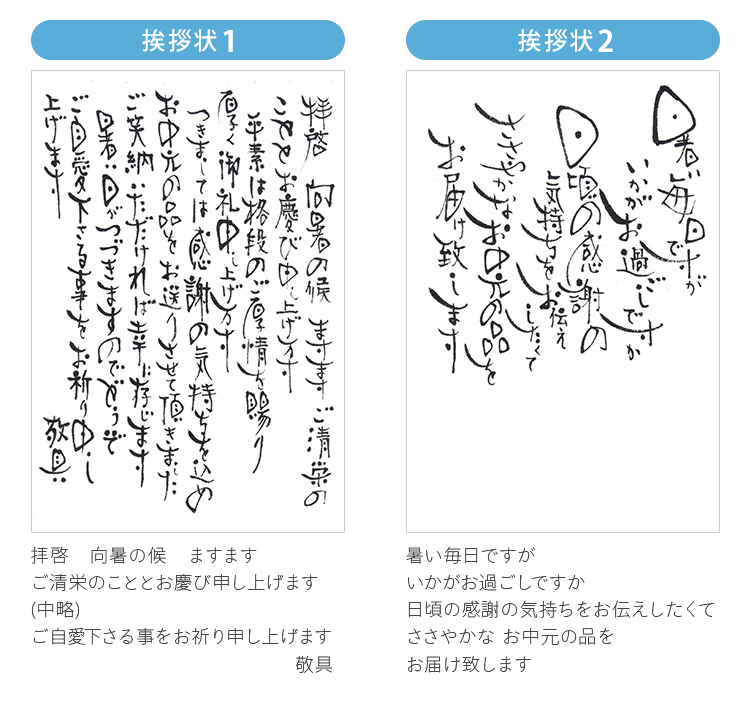 挨拶状1
拝啓 向暑の候 ますます ご清栄の
こととお慶び申し上げます
平素は格段のご厚情を賜り
厚く御礼申し上げます
つきましては感謝の気持ちを込め
お中元の品をお送りさせて頂きました
ご笑納いただければ幸に存じます
暑い日がつづきますのでどうぞ
ご自愛下さる事をお祈り申し
上げます
敬具
拝啓 向暑の候 ますます
ご清栄のこととお慶び申し上げます
(中略)
ご自愛下さる事をお祈り申し上げます
敬具
挨拶状2
暑い毎日ですが
いかがお過ごしですか
日頃の感謝の
気持ちをお伝え
したくて
ささやかなお中元の品を
お届け致します
暑い毎日ですが
いかがお過ごしですか
日頃の感謝の気持ちをお伝えしたくて
ささやかな お中元の品を
お届け致します